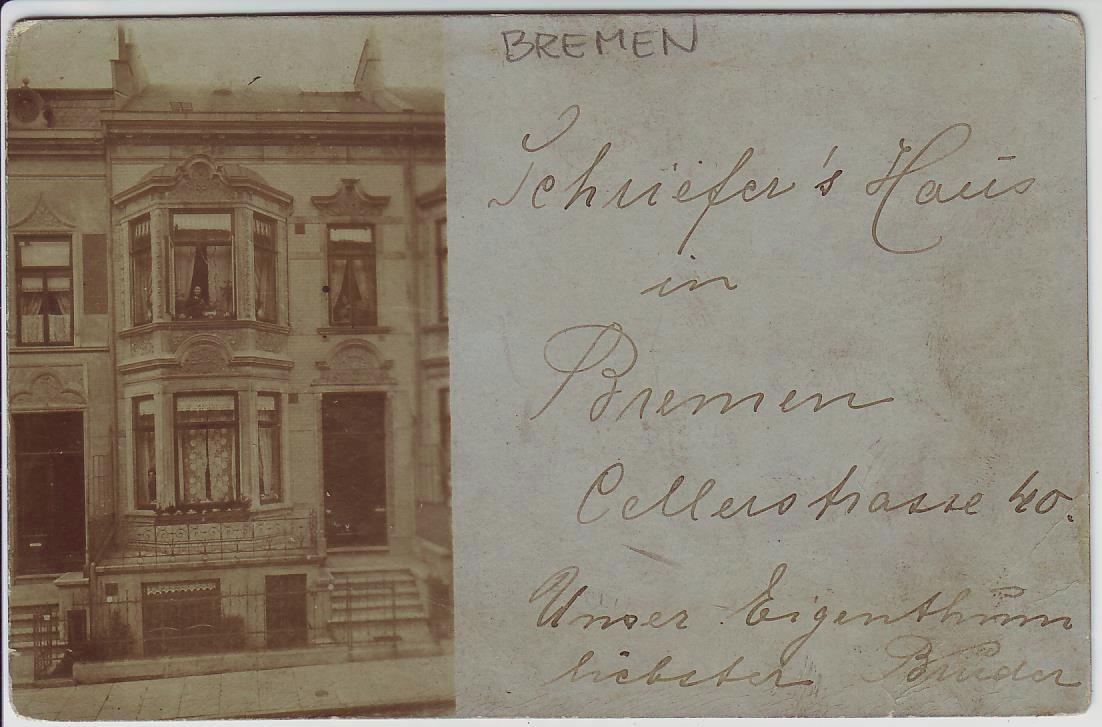 BREMEN
Schriefer's Haus
in
Bremen
Cellerstrasse 40.
Unser Eigenthum
liebster Bruder